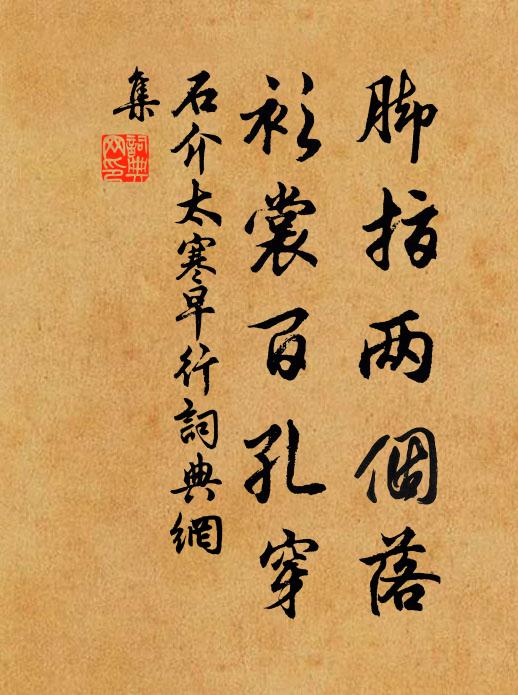 脚指两個落
衫裳百孔穿
石介太寒早行詞典網
集
詞典网印